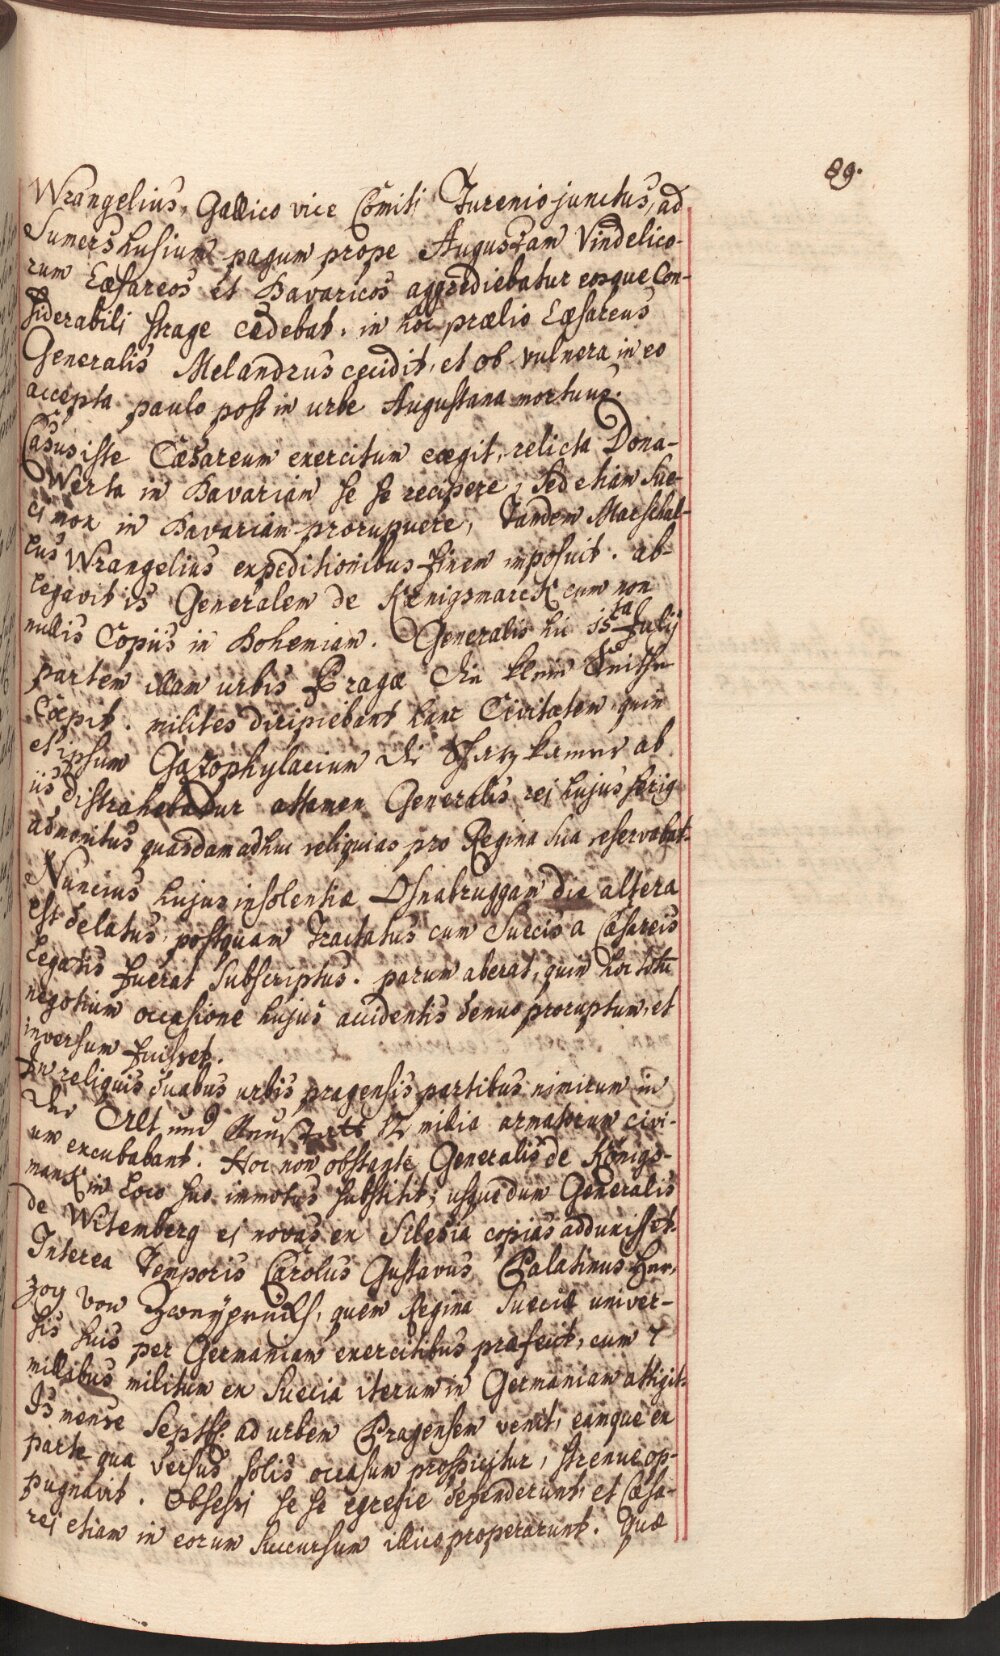 89.
Wrangelius, Gallico vice Comiti Turenio junctus, ad
Sumershusium pagum prope Augustam Vindelico-
rum Cæsareos et Bavaricos aggrediebatur eosque con-
siderabili strage cædebat. in hoc prælio Cæsareus
Generalis Melandrus cecidit, et ob vulnera in eo
accepta paulo post in urbe Augustana mortuus.
Casus iste Cæsareum exercitum coegit, relicta Dona-
werta in Bavariam se se recipere, sed etiam Sue-
ci mox in Bavariam prorupuere, Tandem Marschal-
lus Wrangelius expeditionibus finem imposuit. ab-
legavit is Generalem de Kœnigsmarck cum non
nullis Copiis in Bohemiam. Generalis hic 15ta Julij
partem illam urbis Pragæ die kleine Seithe
Cœpit. milites diripiebant hanc Civitatem quin
et ipsum Gazophylacium die Schazkamer ab
iis distrahebatur attamen Generalis rei hujus serio
admonitus quasdam adhuc reliquias pro Regina sua reservabat.
Nuncius hujus insolentiæ Osnabruggam die altera
est delatus, postquam Tractatus cum Suecis a Cæsareis
Legatis fuerat subscriptus. parum aberat, quin hoc totu
negotium occasione hujus accidentis denuo proruptum, et
inversum fuisset.
In reliquis duabus urbis pragensis partibus nimirum in
der Alt und Neustatt 12 milia armatorum civi-
um excubabant. Hoc non obstante Generalis de Königs-
marck in loco suo immotus substitit, usquedum Generalis
de Witemberg ei novas ex Silesia copias adduxisset.
Interea Temporis Carolus Gustavus Palatinus Her-
zog von Zweypruckh, quem Regina Sueciæ univer-
sis suis per Germaniam exercitibus præfecit, cum 7
millibus militum ex Suecia iterum in Germaniam attigit.
Is mense Septbr. ad urbem Pragensem venit, eamque ex
parte qua versus solis occasum prospicitur, strenue op-
pugnavit. Obsessi se se egregie defenderunt, et Cæsa-
rei etiam in eorum succursum illico properarunt. Quæ